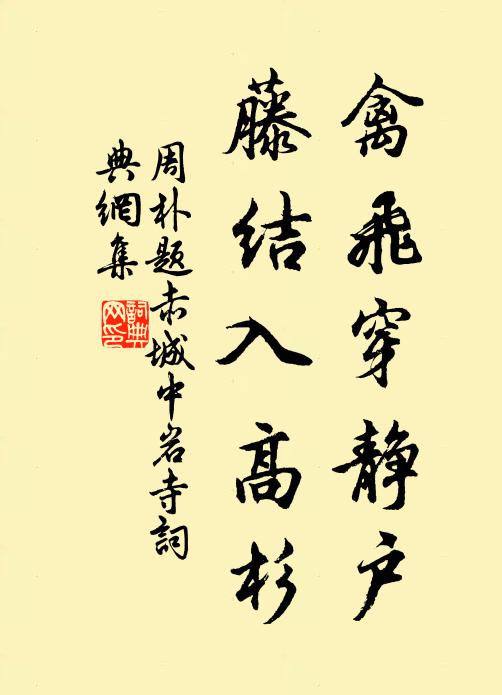 禽飛穿靜戶
藤結入高杉
周朴題赤城中岩寺詞
典網集
詞典網印